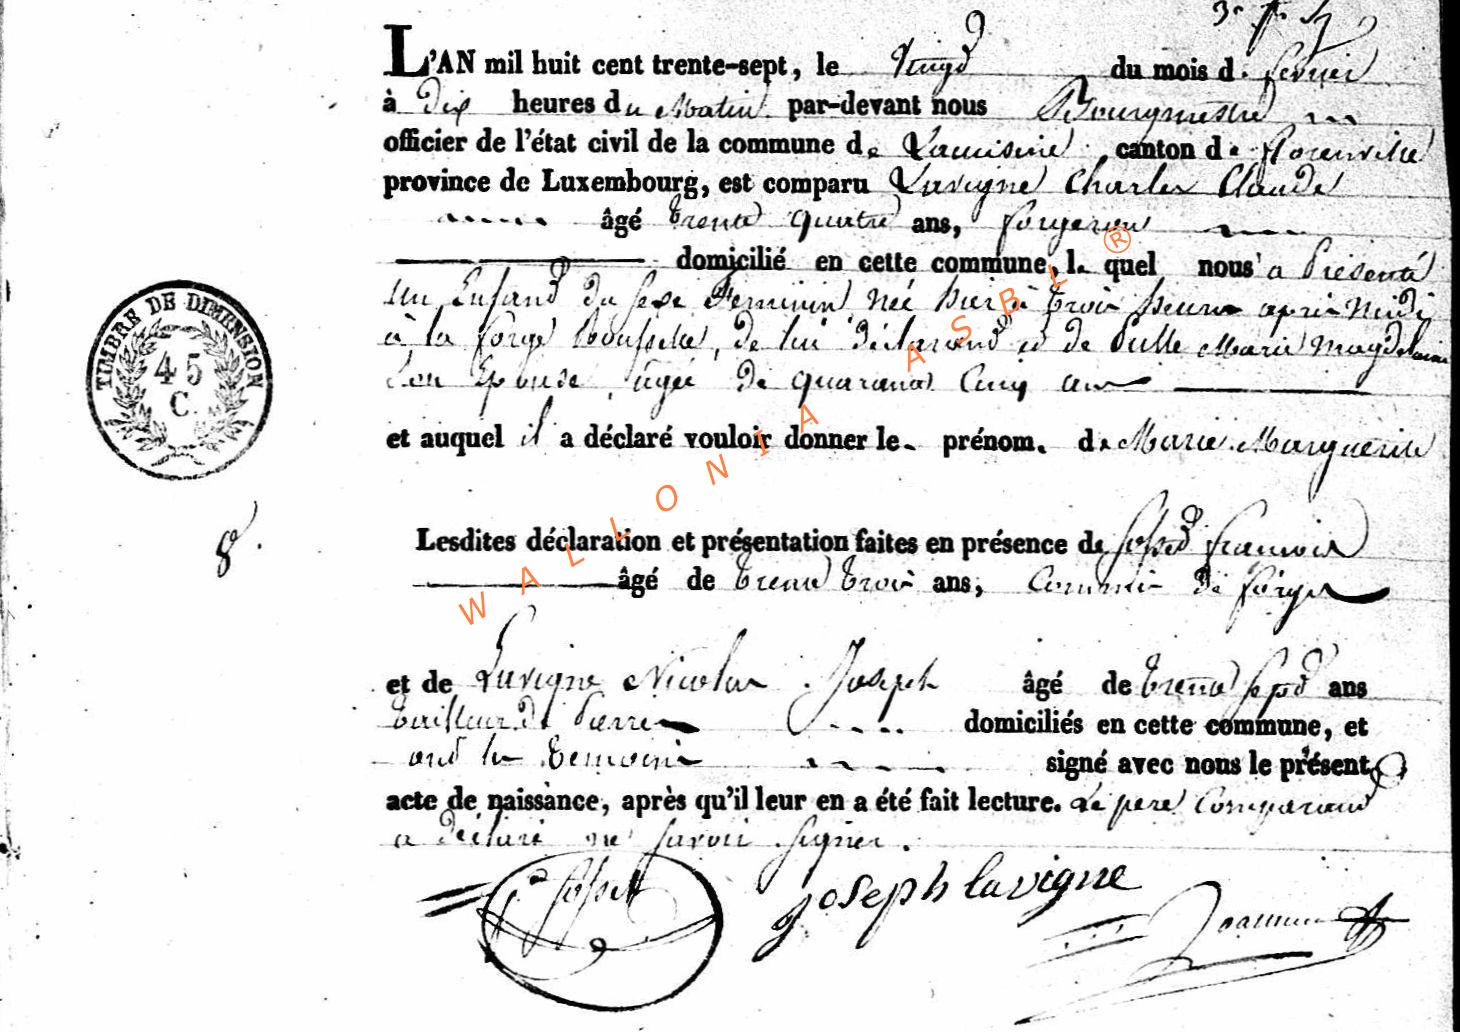 L'AN mil huit cent trente-sept, le Vingd du mois de fevrier
à dix heures du Matin par-devant nous Bourgmestre
officier de l'état civil de la commune de Lacuisine canton de florenville
province de Luxembourg, est comparu Lavigne Charles Claude
âgé trente quatre ans, forgeron
domicilié en cette commune, le quel nous a Présenté
un Enfand du sexe Feminin, née hier à trois heures après Midi
à la forge Roussele, de lui déclarand et de Pulle Marie Magdelaine
Son Epouse, agée de quarante Cinq ans
et auquel il a déclaré vouloir donner le prénom de Marie Marguerite
Lesdites déclaration et présentation faites en présence de Josset francois
âgé de trente trois ans, Commis de forges
et de Lavigne Nicolas Joseph âgé de trente sept ans
tailleur de Pierres domiciliés en cette commune, et
ond les temoins signé avec nous le présent
acte de naissance, après qu'il leur en a été fait lecture. Le pere Comparand
a déclaré ne savoir signer.
Josset joseph lavigne
TIMBRE DE DIMENSION
45
C.
8
WALLONIA ASBL ®